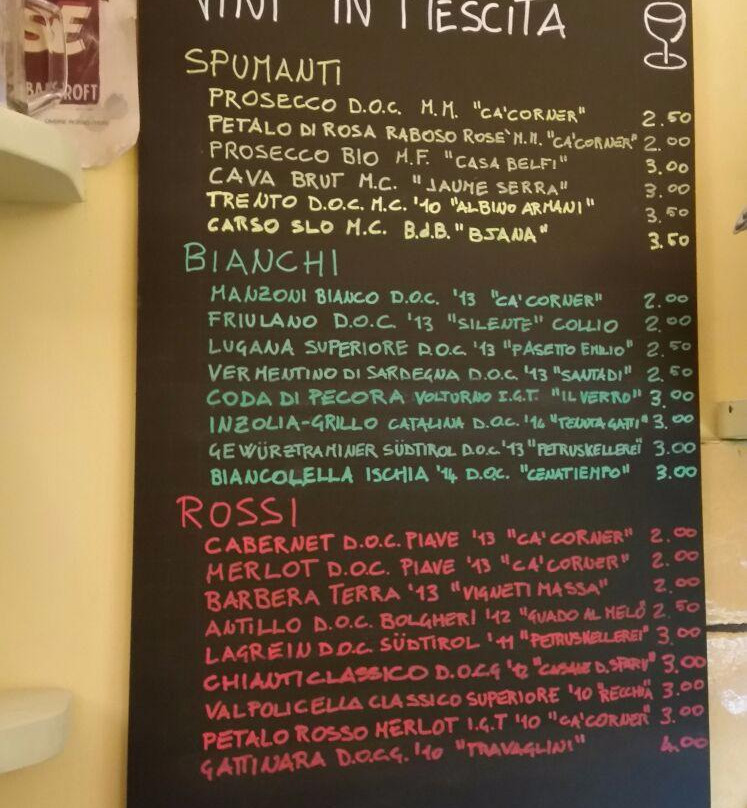 VINI IN MESCITA
SE
BANCROFT
SPUMANTI
PROSECCO D.O.C. M.M. "CA'CORNER" 2.50
PETALO DI ROSA RABOSO ROSE' M.M. "CA'CORNER" 2.00
PROSECCO BIO M.F. "CASA BELFI" 3.00
CAVA BRUT M.C. "JAUME SERRA" 3.00
TRENTO D.O.C. M.C. '10 "ALBINO ARMANI" 3.50
CARSO SLO M.C. B.d.B. "BJANA" 3.50
BIANCHI
MANZONI BIANCO D.O.C. '13 "CA'CORNER" 2.00
FRIULANO D.O.C. '13 "SILENTE" COLLIO 2.00
LUGANA SUPERIORE D.O.C. '13 "PASETTO EMILIO" 2.50
VERMENTINO DI SARDEGNA D.O.C. '13 "SANTADI" 2.50
CODA DI PECORA VOLTURNO I.G.T. "IL VERRO" 3.00
INZOLIA-GRILLO CATALINA D.O.C. '14 "TENUTA GATTI" 3.00
GEWÜRZTRAMINER SÜDTIROL D.O.C. '13 "PETRUSKELLEREI" 3.00
BIANCOLELLA ISCHIA '14 D.O.C. "CENATIEMPO" 3.00
ROSSI
CABERNET D.O.C. PIAVE '13 "CA'CORNER" 2.00
MERLOT D.O.C. PIAVE '13 "CA'CORNER" 2.00
BARBERA TERRA '13 "VIGNETI MASSA" 2.00
ANTILLO D.O.C. BOLGHERI '12 "GUADO AL MELO" 2.50
LAGREIN D.O.C. SÜDTIROL '11 "PETRUSKELLEREI" 3.00
CHIANTI CLASSICO D.O.C.G '12 3.00
VALPOLICELLA CLASSICO SUPERIORE '10 "RECCHIA" 3.00
PETALO ROSSO MERLOT I.G.T '10 "CA'CORNER" 3.00
GATTINARA D.O.C.G. '10 "TRAVAGLINI" 4.00